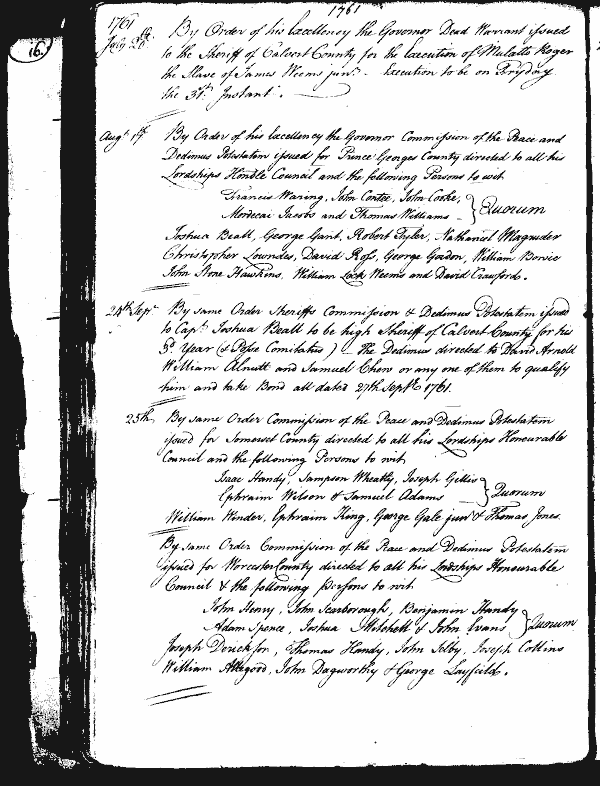 1761
16.
1761
July 20th. By Order of his Excellency the Governor Dead Warrant issued
to the Sheriff of Calvert County for the Execution of Mulatto Roger
the Slave of James Weems junr. - Execution to be on Fryday
the 31st. Instant.
Augt 1st By Order of his Excellency the Governor Commission of the Peace and
Dedimus Potestatem issued for Prince Georges County directed to all his
Lordships Honble Council and the following Persons to wit
Francis Waring, John Contee, John Cooke,
Mordecai Jacobs and Thomas Williams } Quorum
Joshua Beall, George Gant, Robert Tyler, Nathaniel Magruder
Christopher Lowndes, David Ross, George Gordon, William Bowie
John Stone Hawkins, William Lock Weems and David Craufurd.
24th Sepr By same Order Sheriffs Commission & Dedimus Potestatem issued
to Capt. Joshua Beall to be high Sheriff of Calvert County for his
3d. Year (& Posse Comitatus) - the Dedimus directed to David Arnold
William Alnutt and Samuel Chew or any one of them to qualify
him and take Bond all dated 27th Septr. 1761.
25th By same Order Commission of the Peace and Dedimus Potestatem
issued for Somerset County directed to all his Lordships Honourable
Council and the following Persons to wit
Isaac Handy, Sampson Wheatly, Joseph Gillis
Ephraim Wilson & Samuel Adams } Quorum
William Winder, Ephraim King, George Gale junr & Thomas Jones.
By same Order Commission of the Peace and Dedimus Potestatem
issued for Worcester County directed to all his Lordships Honourable
Council & the following Persons to wit
John Henry, John Scarborough, Benjamin Handy
Adam Spence, Joshua Mitchell & John Evans } Quorum
Joseph Derickson, Thomas Handy, John Selby, Joseph Collins
William Allegood, John Dagworthy & George Layfield.